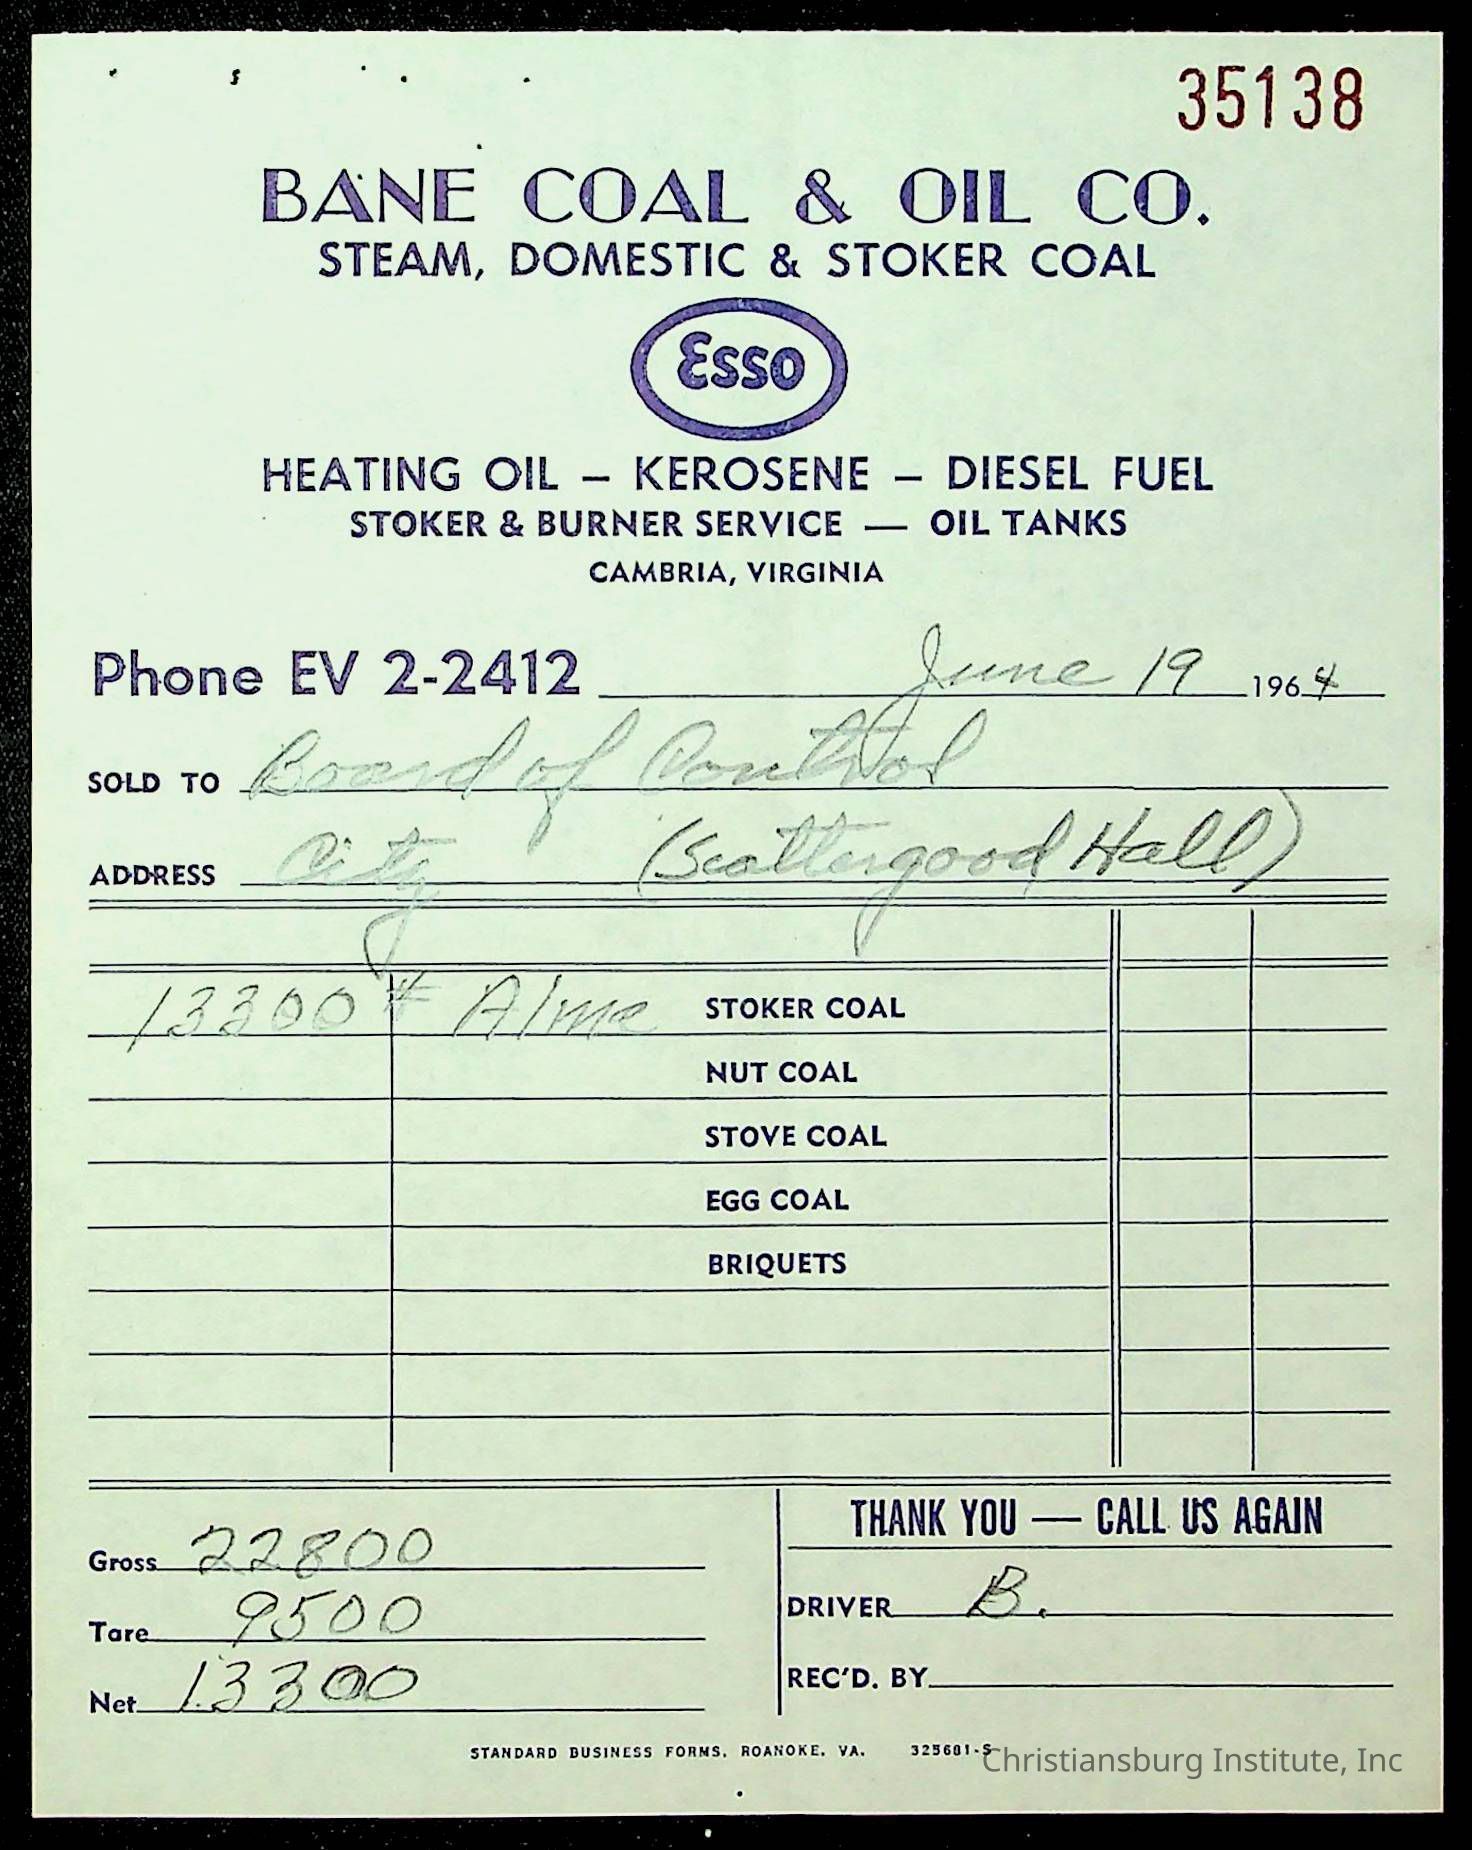 35138
BANE COAL & OIL CO.
STEAM, DOMESTIC & STOKER COAL
Esso
HEATING OIL – KEROSENE – DIESEL FUEL
STOKER & BURNER SERVICE — OIL TANKS
CAMBRIA, VIRGINIA
Phone EV 2-2412 June 19 1964
SOLD TO Board of Control
ADDRESS City (Scattergood Hall)
13300 # Alma STOKER COAL
NUT COAL
STOVE COAL
EGG COAL
BRIQUETS
THANK YOU — CALL US AGAIN
Gross 22800
Tare 9500
Net 13300
DRIVER B.
REC'D. BY
STANDARD BUSINESS FORMS, ROANOKE, VA. 325681-S
Christiansburg Institute, Inc